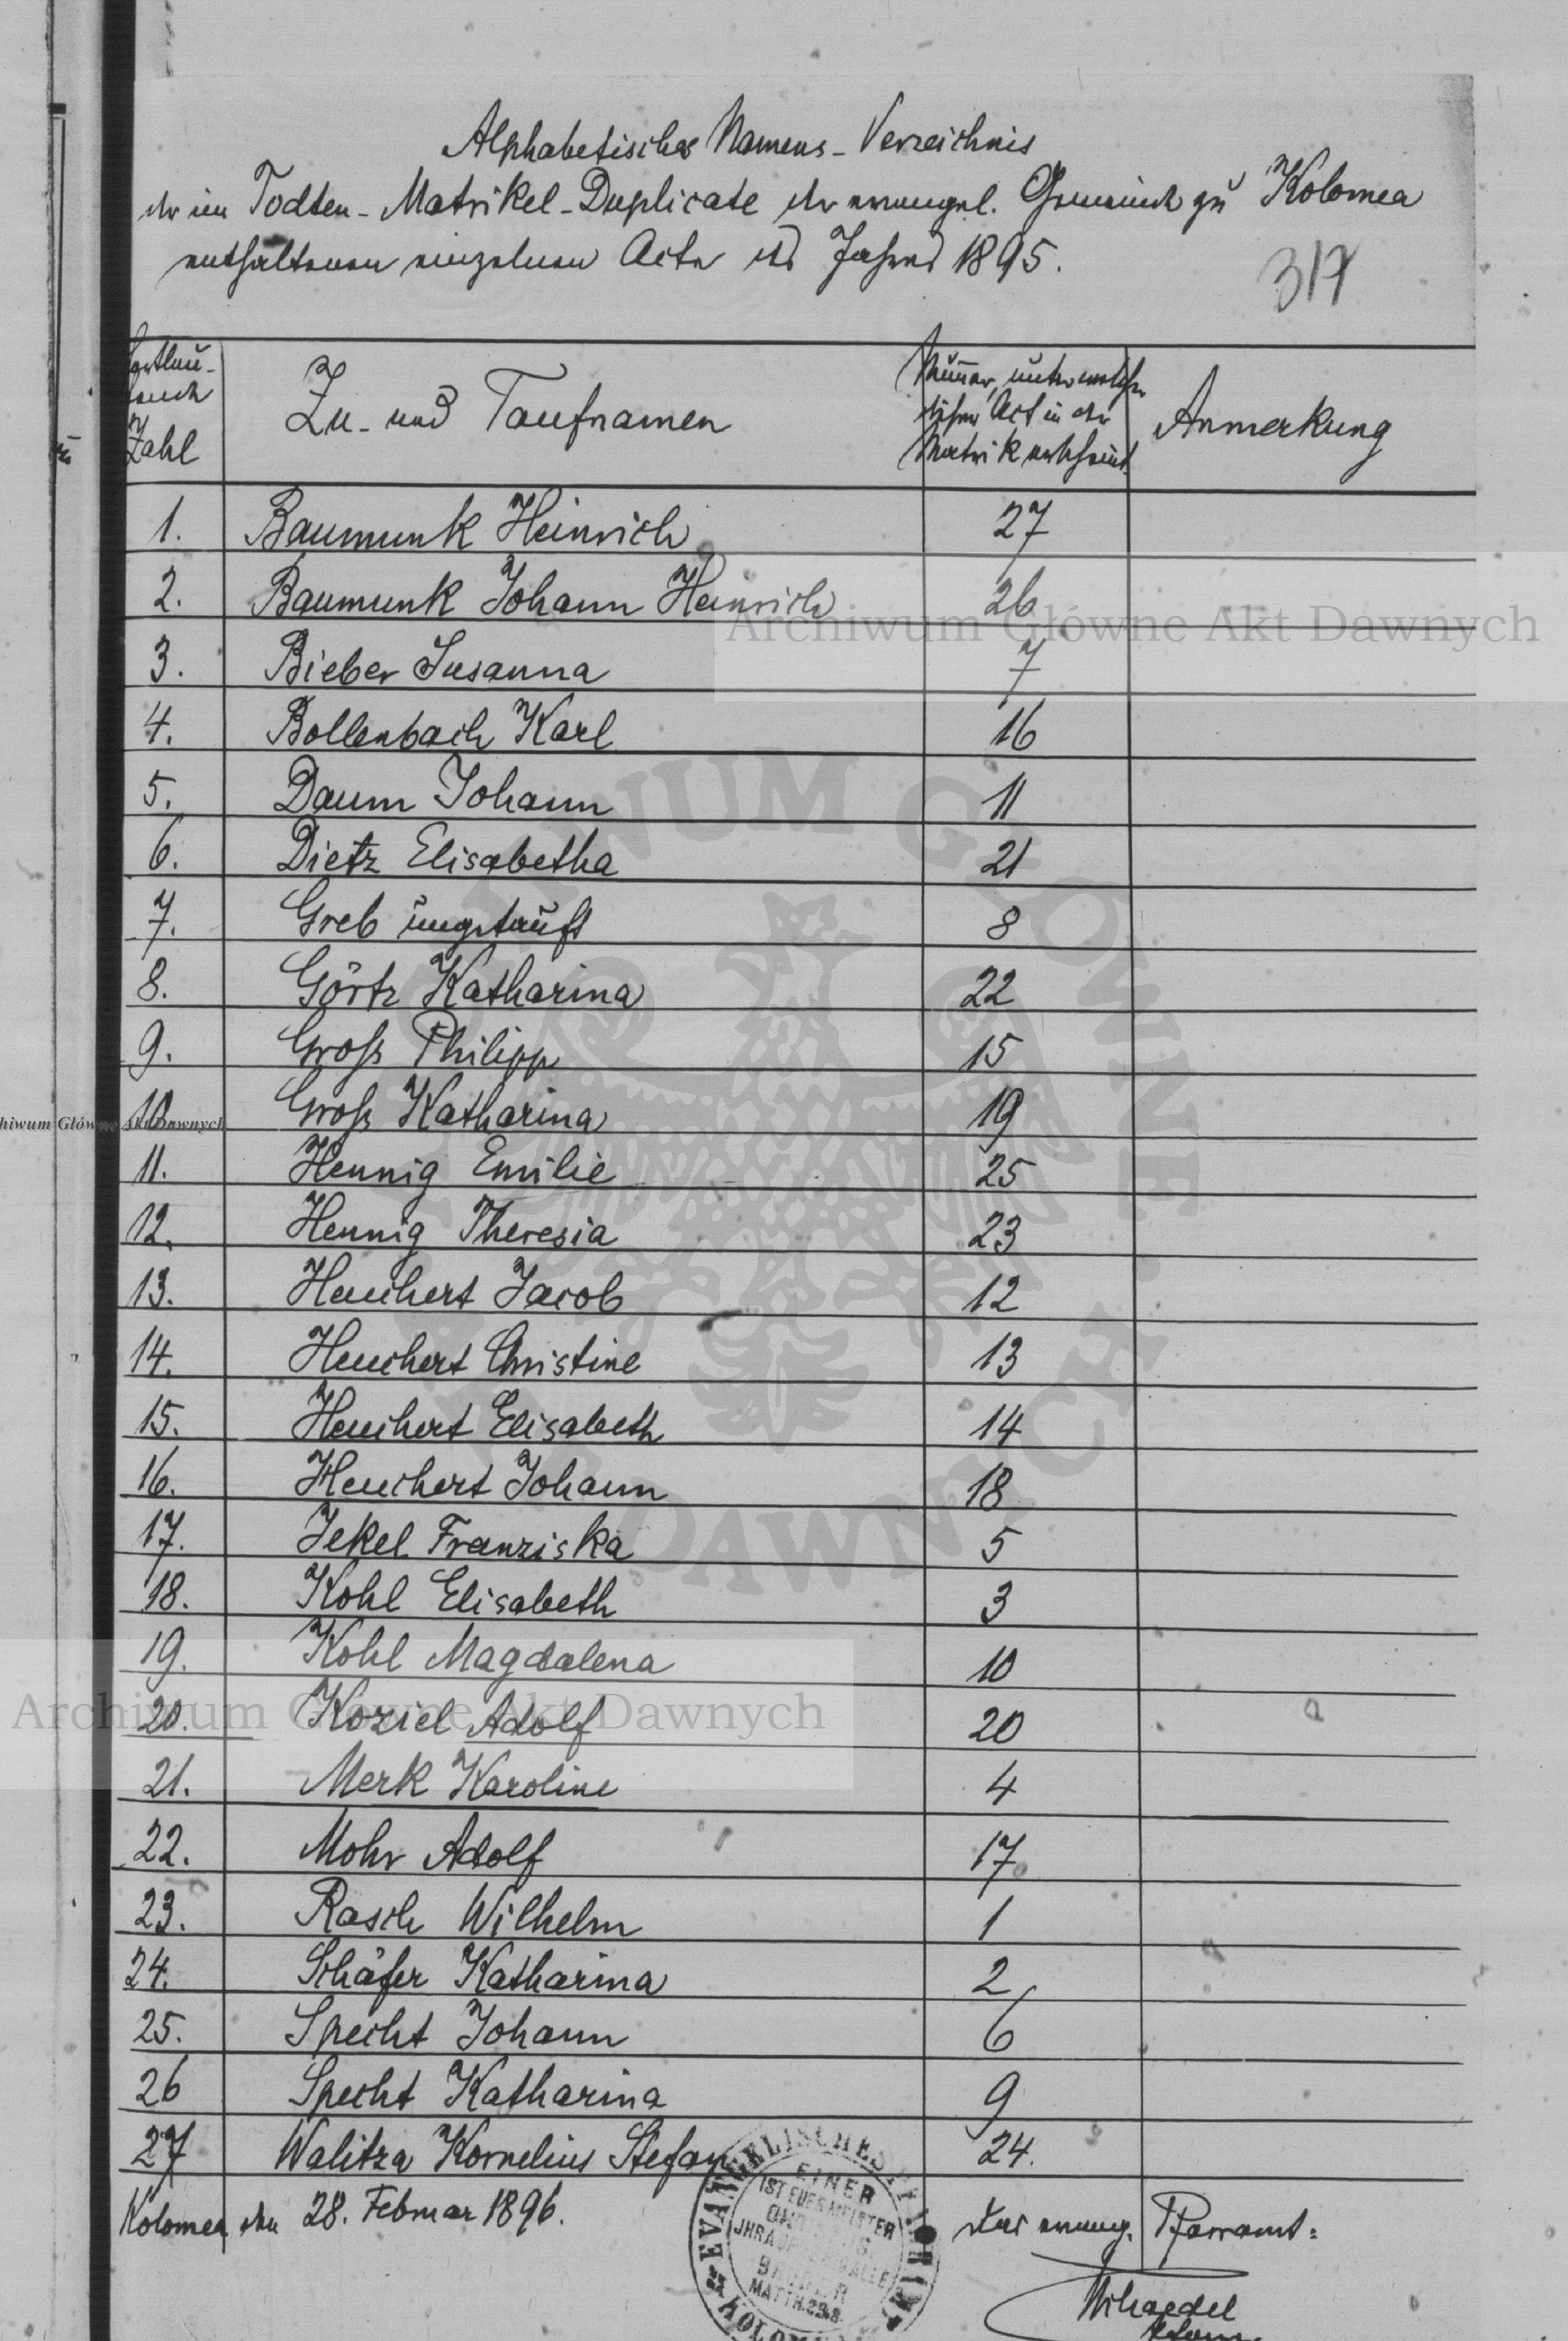 Alphabetisches Namens-Verzeichnis
der im Todten-Matrikel-Duplicate der evangel. Gemeinde zu Kolomea
enthaltenen einzelnen Acte des Jahres 1895.
317
Fortlau-
fende
Zahl
Zu- und Taufnamen
Nummer, unter welcher
dieser Act in der
Matrik erscheint.
Anmerkung
1. Baumunk Heinrich 27
2. Baumunk Johann Heinrich 26
Archiwum Główne Akt Dawnych
3. Bieber Susanna 7
4. Bollenbach Karl 16
5. Daum Johann 11
6. Dietz Elisabetha 21
7. Greb ungetauft 8
8. Görtz Katharina 22
9. Groß Philipp 15
10. Groß Katharina 19
hiwum Główne Akt Dawnych
11. Hennig Emilie 25
12. Hennig Theresia 23
13. Heuchert Jacob 12
14. Heuchert Christine 13
15. Heuchert Elisabeth 14
16. Heuchert Johann 18
17. Jekel Franziska 5
18. Kohl Elisabeth 3
19. Kohl Magdalena 10
20. Koziel Adolf 20
Archiwum Główne Akt Dawnych
21. Merk Karoline 4
22. Mohr Adolf 17
23. Rasch Wilhelm 1
24. Schäfer Katharina 2
25. Specht Johann 6
26 Specht Katharina 9
27 Walitza Kornelius Stefan 24.
Kolomea den 28. Februar 1896.
Das evang. Pfarramt:
EVANGELISCHES PFARRAMT KOLOMEA
EINER
IST EUER MEISTER
JHR ABER SEID ALLE
BRÜDER
MATTH. 23.8.